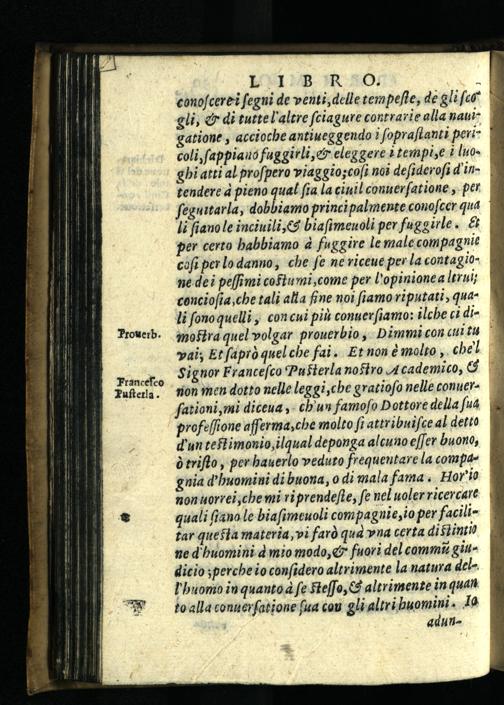 LIBRO.
conoscere i segni de venti, delle tempeste, de gli sco
gli, & di tutte l'altre sciagure contrarie alla naui-
gatione, accioche antiueggendo i soprastanti peri-
coli, sappiano fuggirli, & eleggere i tempi, e i luo-
ghi atti al prospero viaggio; cosi noi desiderosi d'in-
tendere à pieno qual sia la ciuil conuersatione, per
seguitarla, dobbiamo principalmente conoscer qua
li siano le inciuili, & biasimeuoli per fuggirle. Et
per certo habbiamo à fuggire le male compagnie
cosi per lo danno, che se ne riceue per la contagio-
ne de i pessimi costumi, come per l'opinione altrui;
conciosia, che tali alla fine noi siamo riputati, qua-
li sono quelli, con cui più conuersiamo: ilche ci di-
Prouerb.
mostra quel volgar prouerbio, Dimmi con cui tu
vai; Et saprò quel che fai. Et non è molto, che'l
Signor Francesco Pusterla nostro Academico, &
Francesco
Pusterla.
non men dotto nelle leggi, che gratioso nelle conuer-
sationi, mi diceua, ch'un famoso Dottore della sua
professione afferma, che molto si attribuisce al detto
d'un testimonio, ilqual deponga alcuno esser buono,
ò tristo, per hauerlo veduto frequentare la compa-
gnia d'huomini di buona, o di mala fama. Hor'io
non uorrei, che mi riprendeste, se nel uoler ricercare
quali siano le biasimeuoli compagnie, io per facili-
tar questa materia, vi farò quà vna certa distintio
ne d'huomini à mio modo, & fuori del commũ giu-
dicio; perche io considero altrimente la natura del-
l'huomo in quanto à se stesso, & altrimente in quan
to alla conuersatione sua con gli altri huomini. Io
adun-